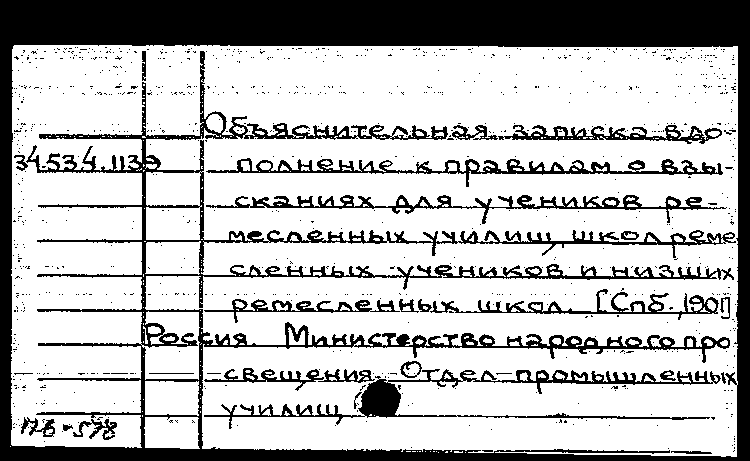 Объяснительная записка в до-
34.534.1139 полнение к правилам о взы-
сканиях для учеников ре-
месленных училищ, школ реме
сленных учеников и низших
ремесленных школ. [Спб., 1901]
Россия. Министерство народного про
свещения. Отдел промышленных
училищ
пв-578